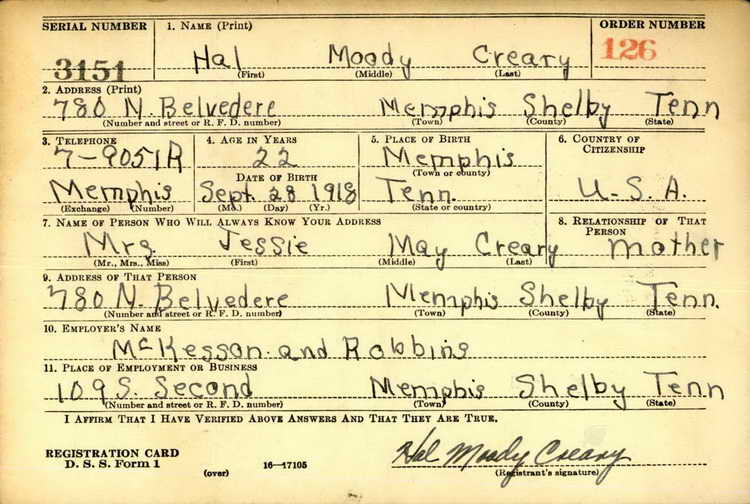 SERIAL NUMBER 1. NAME (Print) ORDER NUMBER
3151 Hal Moody Creary 126
(First) (Middle) (Last)
2. ADDRESS (Print)
780 N. Belvedere Memphis Shelby Tenn
(Number and street or R. F. D. number) (Town) (County) (State)
3. TELEPHONE 4. AGE IN YEARS 5. PLACE OF BIRTH 6. COUNTRY OF CITIZENSHIP
7-9051R 22 Memphis
(Town or county)
DATE OF BIRTH
Memphis Sept. 28 1918 Tenn. U.S.A.
(Exchange) (Number) (Mo.) (Day) (Yr.) (State or country)
7. NAME OF PERSON WHO WILL ALWAYS KNOW YOUR ADDRESS 8. RELATIONSHIP OF THAT PERSON
Mrs Jessie May Creary mother
(Mr., Mrs., Miss) (First) (Middle) (Last)
9. ADDRESS OF THAT PERSON
780 N. Belvedere Memphis Shelby Tenn.
(Number and street or R. F. D. number) (Town) (County) (State)
10. EMPLOYER'S NAME
McKesson and Robbins
11. PLACE OF EMPLOYMENT OR BUSINESS
109 S. Second Memphis Shelby Tenn
(Number and street or R. F. D. number) (Town) (County) (State)
I AFFIRM THAT I HAVE VERIFIED ABOVE ANSWERS AND THAT THEY ARE TRUE.
REGISTRATION CARD Hal Moody Creary
D. S. S. Form 1 (over) 16—17105 (Registrant's signature)